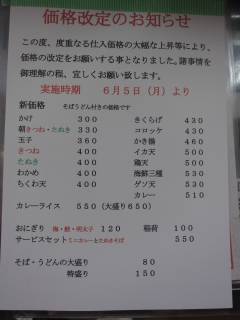 価格改定のお知らせ
この度、度重なる仕入価格の大幅な上昇等により、
価格の改定をお願いする事となりました。諸事情を
御理解の程、宜しくお願い致します。
実施時期 6月5日（月）より
新価格 そばうどん付きの価格です
かけ 300
朝きつね・たぬき 330
玉子 360
きつね 400
たぬき 400
わかめ 400
ちくわ天 400
カレーライス 550（大盛り650）
きくらげ 430
コロッケ 430
かき揚 460
イカ天 500
鶏天 500
海鮮三種 530
ゲソ天 530
カレー 510
おにぎり 梅・鮭・明太子 120 稲荷 100
サービスセット ミニカレーとたぬきそば 550
そば・うどんの大盛り 80
特盛り 150